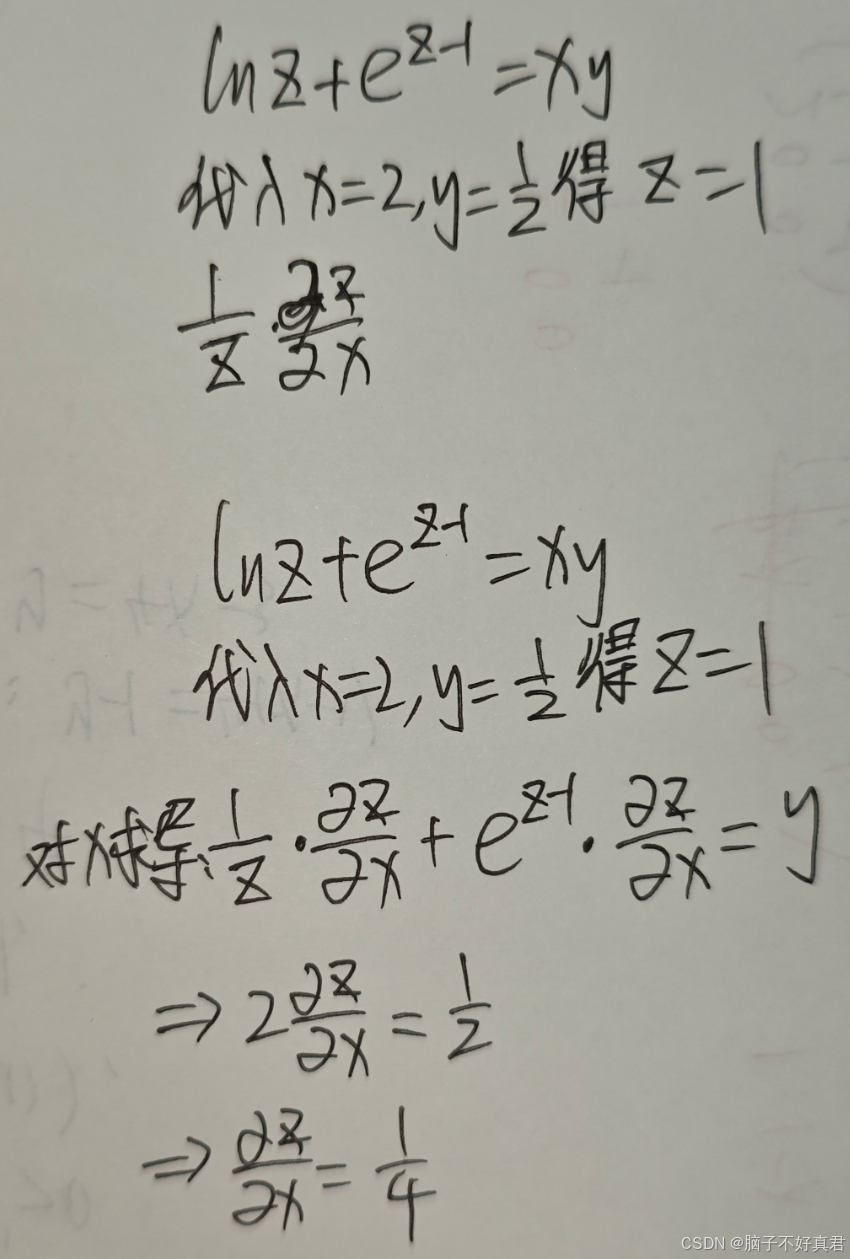 lnz+e^{z-1}=xy
代入x=2,y=\frac{1}{2}得z=1
\frac{1}{z}·\frac{∂z}{∂x}
lnz+e^{z-1}=xy
代入x=2,y=\frac{1}{2}得z=1
对x求导:\frac{1}{z}·\frac{∂z}{∂x}+e^{z-1}·\frac{∂z}{∂x}=y
⇒2\frac{∂z}{∂x}=\frac{1}{2}
⇒\frac{∂z}{∂x}=\frac{1}{4}
CSDN @脑子不好真君